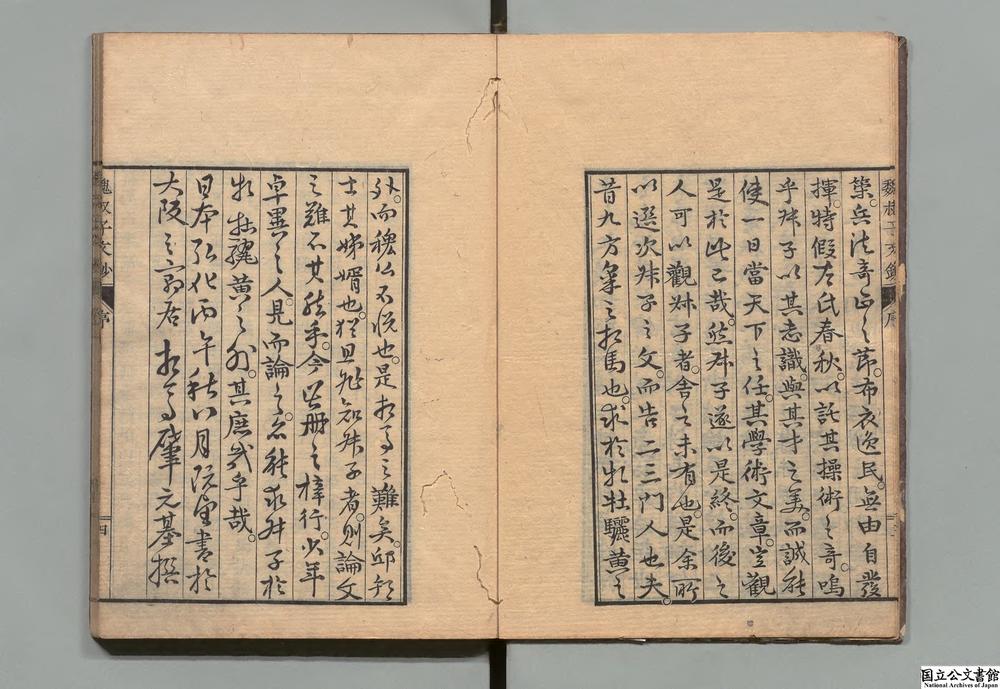 魏叔子文鈔 序
策。兵法奇正之節。布衣逸民。無由自發
揮。特假左氏春秋。以託其操術之奇。嗚
乎叔子以其志識。與其才之美。而誠能
使一日當天下之任。其學術文章。豈觀
是於此已哉。然叔子遂以是終。而後之
人可以觀叔子者。舍之未有也。是余所
以選次叔子之文。而告二三門人也。夫
昔九方皐之相馬也。求於牝牡驪黃之
外。而穆公不悅也。是相馬之難矣。邱邦
士其姊婿也。猶且非知叔子者。則論文
之難不其然乎。今茲冊之梓行。少年
卓異之人。見而論之。亦能求叔子於
牝牡驪黃之外。其庶幾乎哉。
日本弘化丙午秋八月既望書於
大阪之寓居 相馬肇元基撰
魏叔子文鈔 序 四
国立公文書館
National Archives of Japan